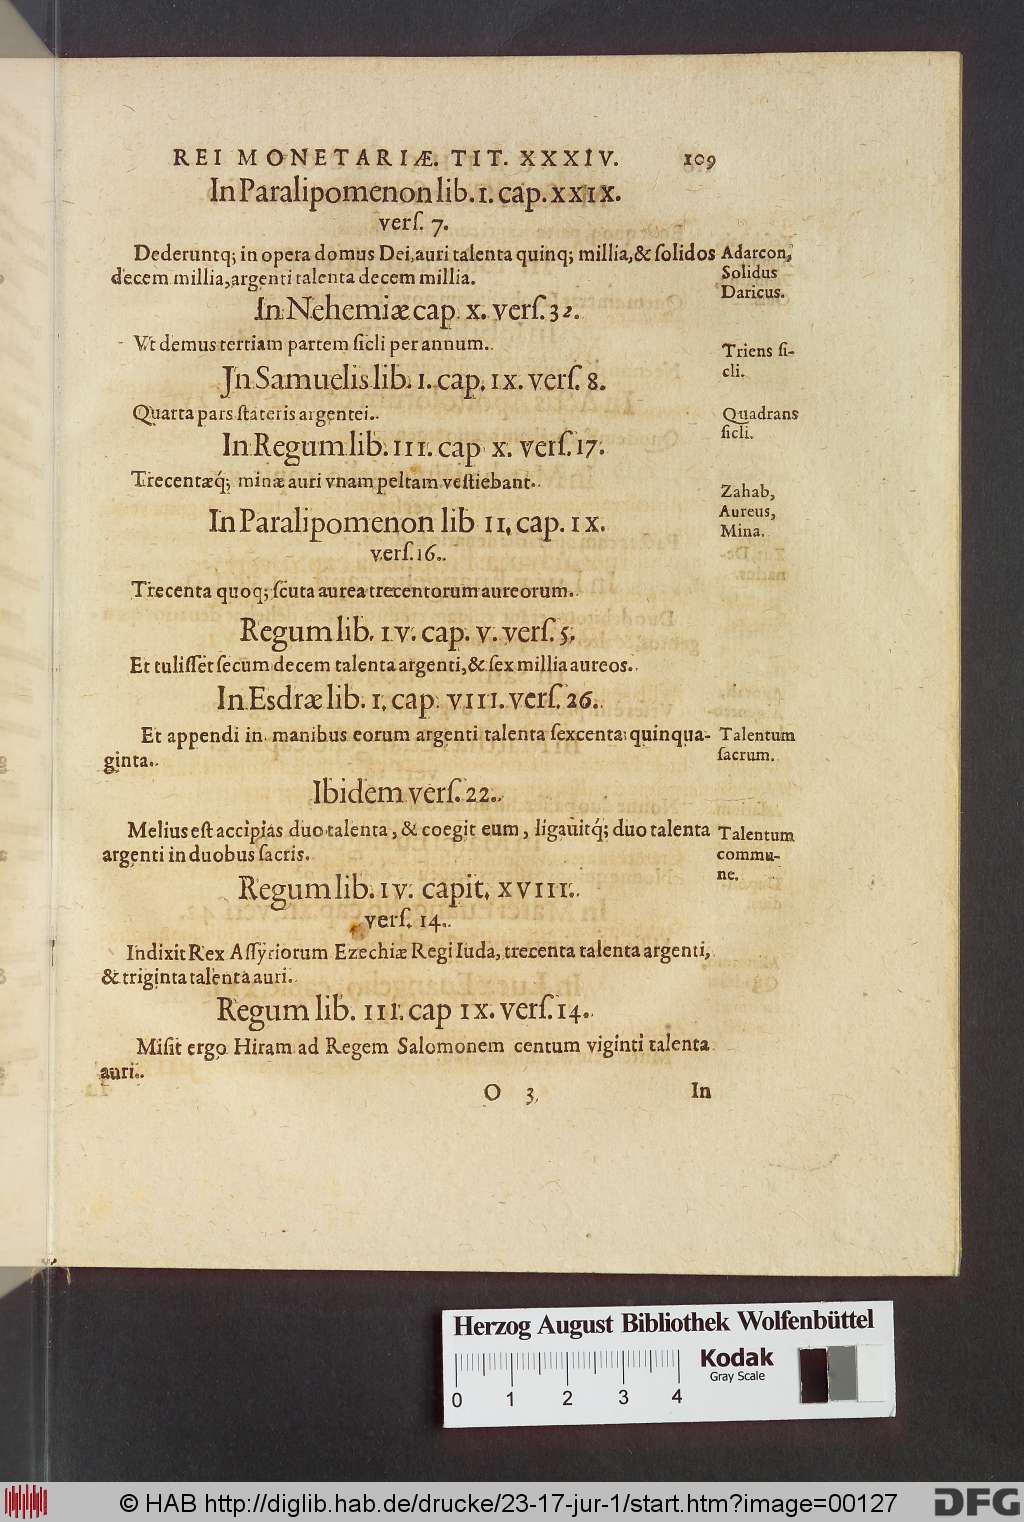 REI MONETARIÆ. TIT. XXXIV. 109
In Paralipomenon lib. I. cap. XXIX.
verſ. 7.
Dederuntq; in opera domus Dei, auri talenta quinq; millia, & ſolidos
decem millia, argenti talenta decem millia.
Adarcon,
Solidus
Daricus.
In Nehemiæ cap. X. verſ. 32.
Vt demus tertiam partem ſicli per annum.
Triens ſi-
cli.
In Samuelis lib. I. cap. IX. verſ. 8.
Quarta pars ſtateris argentei.
Quadrans
ſicli.
In Regum lib. III. cap X. verſ. 17.
Trecentæq́; minæ auri vnam peltam veſtiebant.
Zahab,
Aureus,
Mina.
In Paralipomenon lib II. cap. IX.
verſ. 16.
Trecenta quoq; ſcuta aurea trecentorum aureorum.
Regum lib. IV. cap. V. verſ. 5.
Et tuliſſet ſecum decem talenta argenti, & ſex millia aureos.
In Esdræ lib. I. cap. VIII. verſ. 26.
Et appendi in manibus eorum argenti talenta ſexcenta quinqua-
ginta.
Talentum
ſacrum.
Ibidem verſ. 22.
Melius eſt accipias duo talenta, & coegit eum, ligauitq́; duo talenta
argenti in duobus ſacris.
Talentum
commu-
ne.
Regum lib. IV. capit. XVIII.
verſ. 14.
Indixit Rex Aſſyriorum Ezechiæ Regi Iuda, trecenta talenta argenti,
& triginta talenta auri.
Regum lib. III. cap IX. verſ. 14.
Miſit ergo Hiram ad Regem Salomonem centum viginti talenta
auri.
O 3 In
Herzog August Bibliothek Wolfenbüttel
Kodak
Gray Scale
0 1 2 3 4
© HAB http://diglib.hab.de/drucke/23-17-jur-1/start.htm?image=00127
DFG